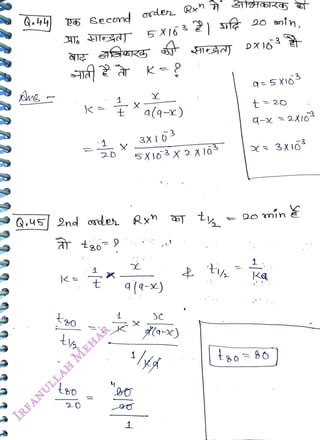 Q.44 एक Second order Rxⁿ में अभिकारक की
प्रा० सान्द्रता 5×10⁻³ है। यदि 20 min.
बाद अभिकारक की सान्द्रता 2×10⁻³ हो
जाती है तो K = ?
Ans -
K = 1/t × x/a(a-x)
= 1/20 × 3×10⁻³/5×10⁻³ × 2×10⁻³
a = 5×10⁻³
t = 20
a-x = 2×10⁻³
x = 3×10⁻³
Q.45 2nd order Rxⁿ का t½ = 20 min है
तो t80 = ?
K = 1/t × x/a(a-x) & t½ = 1/Ka
t80/t½ = 1/K × x/a(a-x) / 1/Ka
t80/20 = 4 80/20 / 1
t80 = 80
IRFANULLAH MEHAR